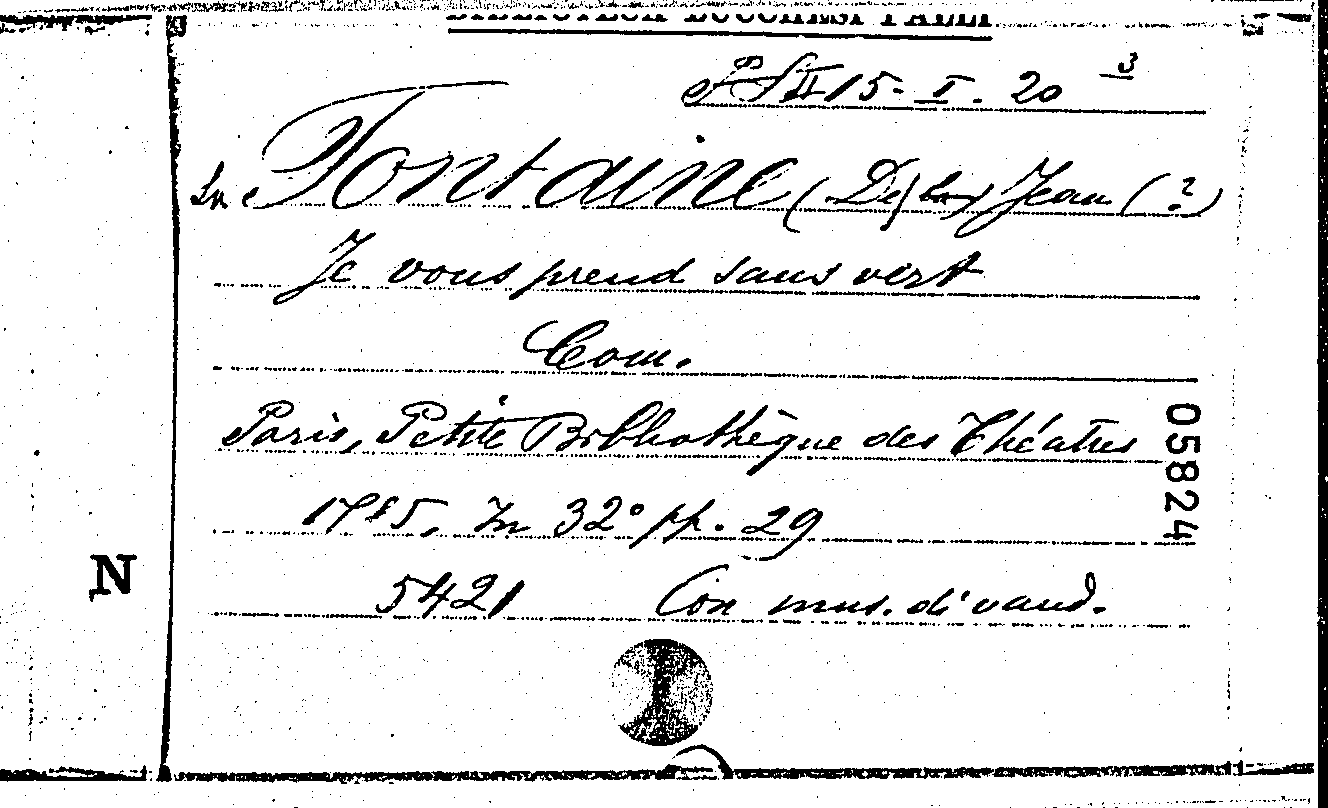 15-I. 20 3
La Fontaine (De) Jean (?)
Je vous prend sans vert
Com.
Paris, Petite Bibliothèque des Théatres
1785. In 32° pp. 29
5421 Con mus. di vaud.
05824
N